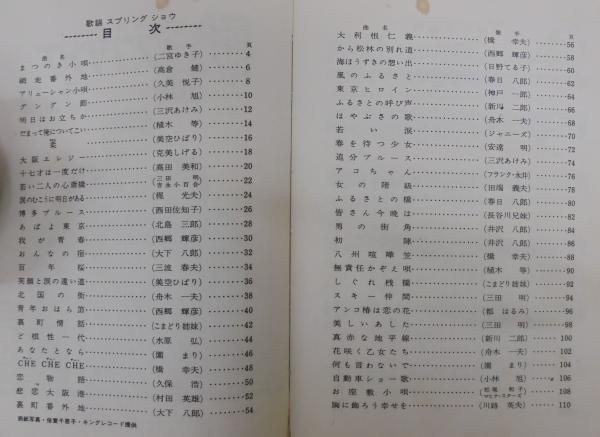 歌謡 スプリング ショウ
目次
曲名 歌手 頁
まつのき小唄 (二宮ゆき子) 4
網走番外地 (高倉 健) 6
アリューシャン小唄 (久美 悦子) 8
グングン節 (小林 旭) 10
明日はお立ちか (三沢あけみ) 12
だまって俺についてこい (植木 等) 14
(美空ひばり) 16
大阪エレジー (克美しげる) 18
十七才は一度だけ (高田 美和) 20
若い二人の心斎橋 (三田 明 吉永小百合) 22
涙のむこうに明日がある (梶 光夫) 24
博多ブルース (西田佐知子) 26
あばよ東京 (北島 三郎) 28
我が青春 (西郷 輝彦) 30
おんなの宿 (大下 八郎) 32
百年桜 (三波 春夫) 34
笑顔と涙の遠い道 (美空ひばり) 36
北国の街 (舟木 一夫) 38
青年おはら節 (西郷 輝彦) 40
裏町情話 (こまどり姉妹) 42
ど根性一代 (水原 弘) 44
あなたとなら (園 まり) 46
CHE CHE CHE (橋 幸夫) 48
恋物語 (久保 浩) 50
悲恋大阪港 (村田 英雄) 52
裏町番外地 (大下 八郎) 54
表紙写真・倍賞千恵子・キングレコード提供
曲名 歌手 頁
大利根仁義 (橋 幸夫) 56
から松林の別れ道 (二宮ゆき子) 58
海ほうずきの想い出 (日野てる子) 60
風のふるさと (春日 八郎) 62
東京ヒロイン (神戸 一郎) 64
ふるさとの呼び声 (新川 二郎) 66
はやぶさの歌 (舟木 一夫) 68
若い涙 (ジャニーズ) 70
春を待つ少女 (安達 明) 72
追分ブルース (三沢あけみ) 74
アコちゃん (フランク永井) 76
女の階級 (田端 義夫) 78
ふるさとの橋 (春日 八郎) 80
皆さん今晩は (長谷川兄妹) 82
男の街角 (井沢 八郎) 84
初陣 (井沢 八郎) 86
八州喧嘩笠 (橋 幸夫) 88
無責任かぞえ唄 (植木 等) 90
しぐれ桟橋 (こまどり姉妹) 92
スキー仲間 (三田 明) 94
アンコ椿は恋の花 (都 はるみ) 96
美しいあした (三田 明) 98
真赤な地平線 (新川 二郎) 100
花咲く乙女たち (舟木 一夫) 102
何も言わないで (園 まり) 104
自動車ショー歌 (小林 旭) 106
お座敷小唄 (松尾 和子 マヒナ・スターズ) 108
胸に飾ろう幸せを (川路 英夫) 110